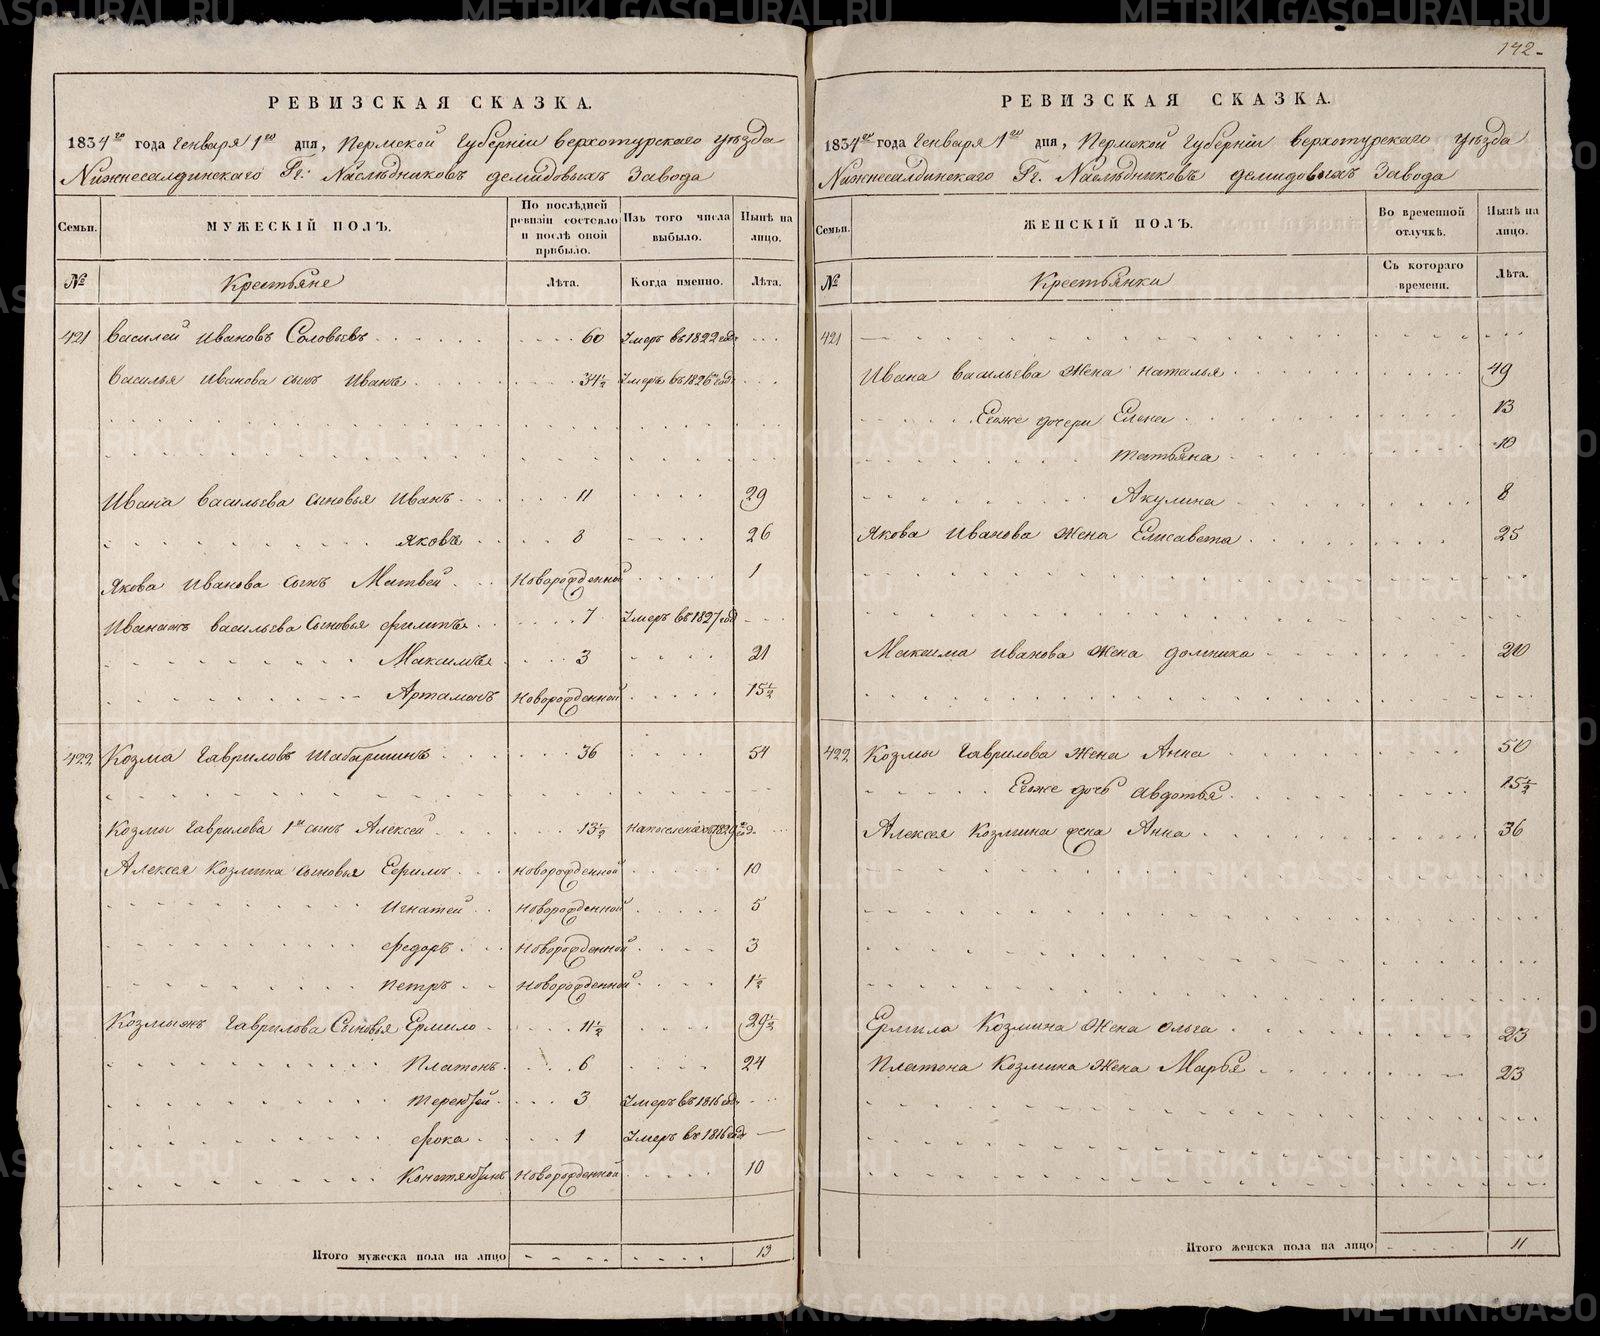 142.
РЕВИЗСКАЯ СКАЗКА.
1834го года Генваря 1го дня, Пермской Губерніи Верхотурскаго уѣзда
Нижнесалдинскаго Гг. Наслѣдниковъ Демидовыхъ Завода
Семьи. МУЖЕСКІЙ ПОЛЪ. По послѣдней ревизіи состояло и послѣ оной прибыло. Изъ того числа выбыло. Нынѣ на лицо.
№ Крестьяне Лѣта. Когда именно. Лѣта.
421 Василей Ивановъ Соловьевъ 60 Умеръ въ 1822 годе
Василья Иванова сынъ Иванъ 34½ Умеръ въ 1826 годе
Ивана Васильева сыновья Иванъ 11 29
Яковъ 8 26
Якова Иванова сынъ Матвей Новорожденной 1
Иванажъ Васильева Сыновья Филипъ 7 Умеръ въ 1827 год
Максимъ 3 21
Артамонъ Новорожденной 15½
422 Козма Гавриловъ Шабаршинъ 36 54
Козмы Гаврилова 1й сынъ Алексей 13½ 1829 год.
Алексея Козмина сыновья Ефимъ Новорожденной 10
Игнатей Новорожденной 5
Федоръ Новорожденной 3
Петръ Новорожденной 1½
Козмыжъ Гаврилова Сыновья Ермило 11½ 29½
Платонъ 6 24
Терентей 3 Умеръ въ 1816 годе
Фока 1 Умеръ въ 1816 годе
Констянтинъ Новорожденной 10
Итого мужеска пола на лицо 13
РЕВИЗСКАЯ СКАЗКА.
1834го года Генваря 1го дня, Пермской Губерніи Верхотурскаго уѣзда
Нижнесалдинскаго Гг. Наслѣдниковъ Демидовыхъ Завода
Семьи. ЖЕНСКІЙ ПОЛЪ. Во временной отлучкѣ. Нынѣ на лицо.
№ Крестьянки Съ котораго времени. Лѣта.
421
Ивана Васильева Жена Наталья 49
Егоже дочери Елена 13
Татьяна 10
Акулина 8
Якова Иванова Жена Елисавета 25
Максима Иванова Жена Домника 20
422 Козмы Гаврилова Жена Анна 50
Егоже дочь Авдотья 15½
Алексея Козмина жена Анна 36
Ермила Козмина Жена Ольга 23
Платона Козмина Жена Марья 23
Итого женска пола на лицо 11
METRIKI.GASO-URAL.RU